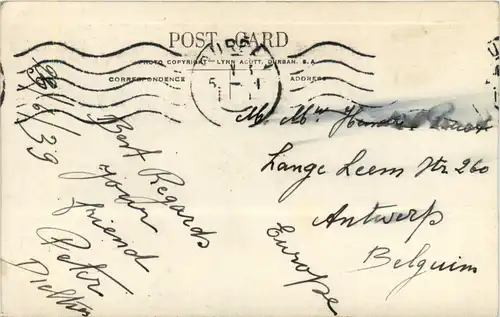 POST CARD
PHOTO COPYRIGHT—LYNN ACUTT, DURBAN. S.A.
CORRESPONDENCE
ADDRESS
/6/39
Best Regards
your
friend
Peter
M. Mme
Lange Leem Str. 260
Antwerp
Belguim
Europe